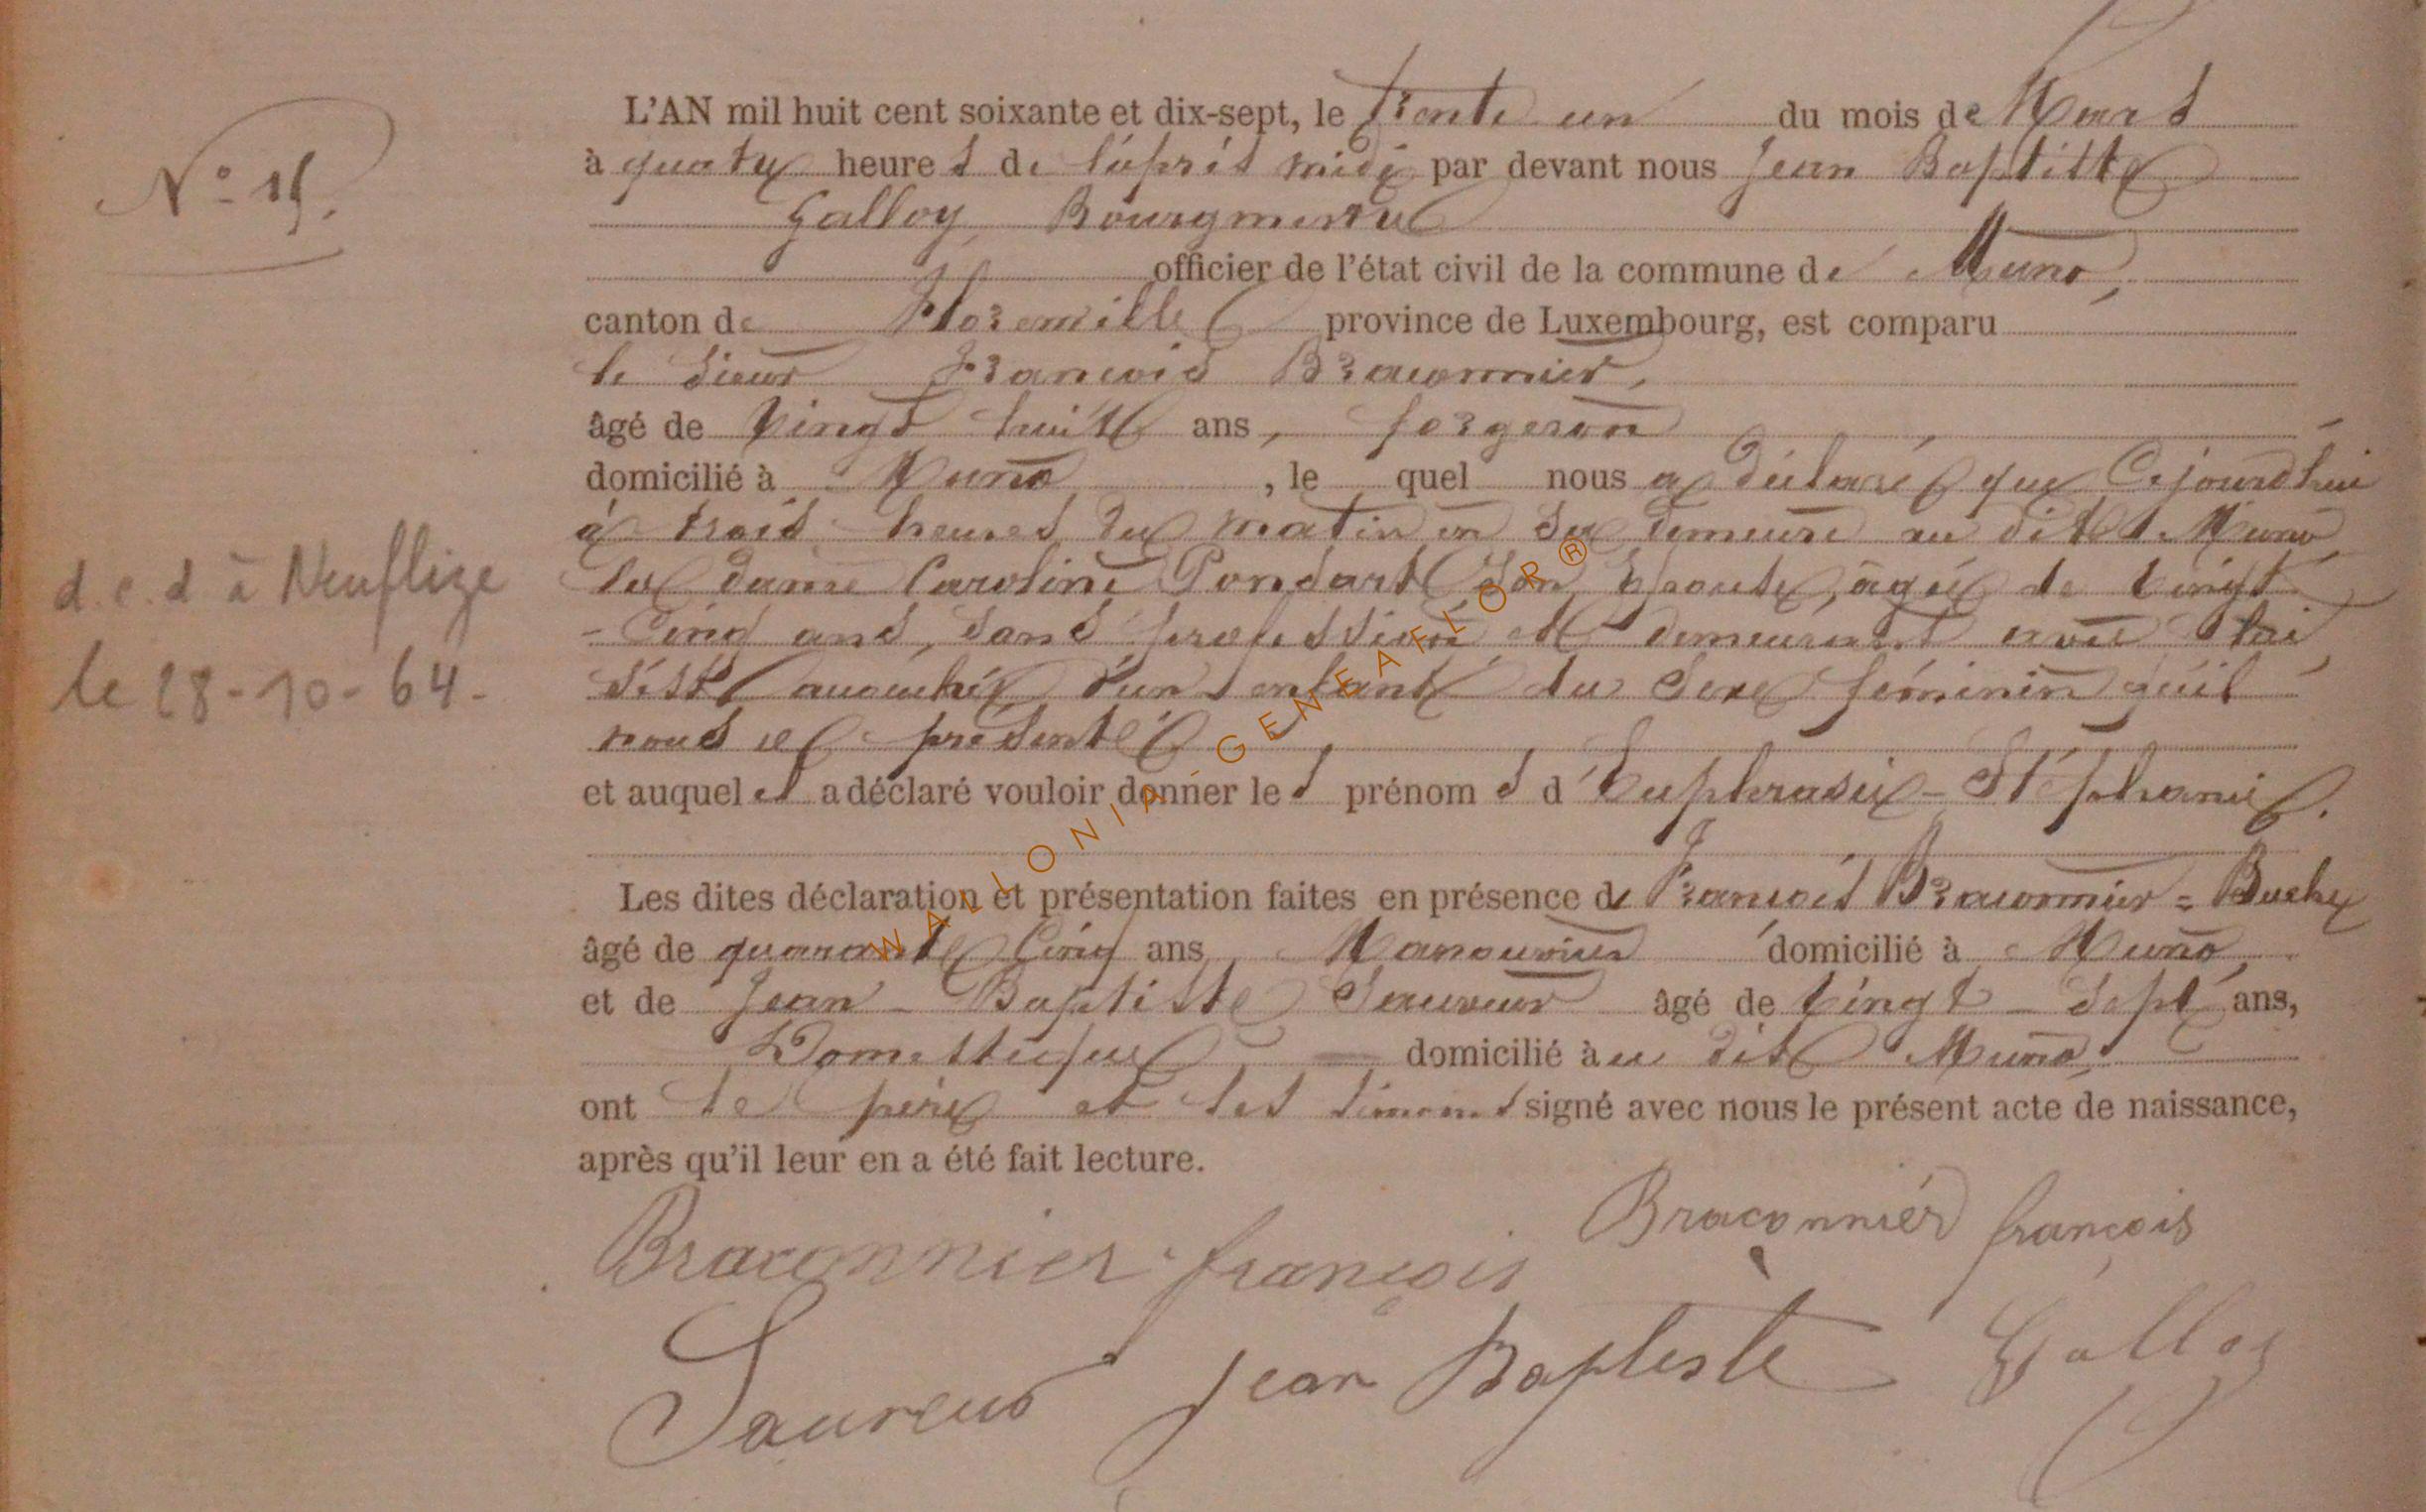 N° 15.
L'AN mil huit cent soixante et dix-sept, le trente un du mois de Mars
à quatre heures de l'après midi par devant nous Jean Baptiste
Galloy, Bourgmestre
officier de l'état civil de la commune de Muno,
canton de Florenville province de Luxembourg, est comparu
le sieur François Braconnier,
âgé de vingt huit ans, forgeron
domicilié à Muno, le quel nous a déclaré que Cejourd'hui
à trois heures du matin en sa demeure au dit Muno
la dame Caroline Ponsart son épouse, âgée de vingt
-Cinq ans, sans profession et demeurant avec lui
s'est accouchée d'un enfant du sexe féminin qu'il
nous a présenté
et auquel il a déclaré vouloir donner les prénoms d'Euphrasie-Stéphanie.
Les dites déclaration et présentation faites en présence de François Braconnier = Buche
âgé de quarante Cinq ans, Manouvrier domicilié à Muno,
et de Jean-Baptiste Sauveur âgé de vingt-sept ans,
Domestique domicilié au dit Muno,
ont le père et les témoins signé avec nous le présent acte de naissance,
après qu'il leur en a été fait lecture.
Braconnier françois
Braconnier françois
Sauveur Jean Baptiste
Galloy
d.c.d à Neuflize
le 28-10-64-
WALLONIA GENEAFLOR ®